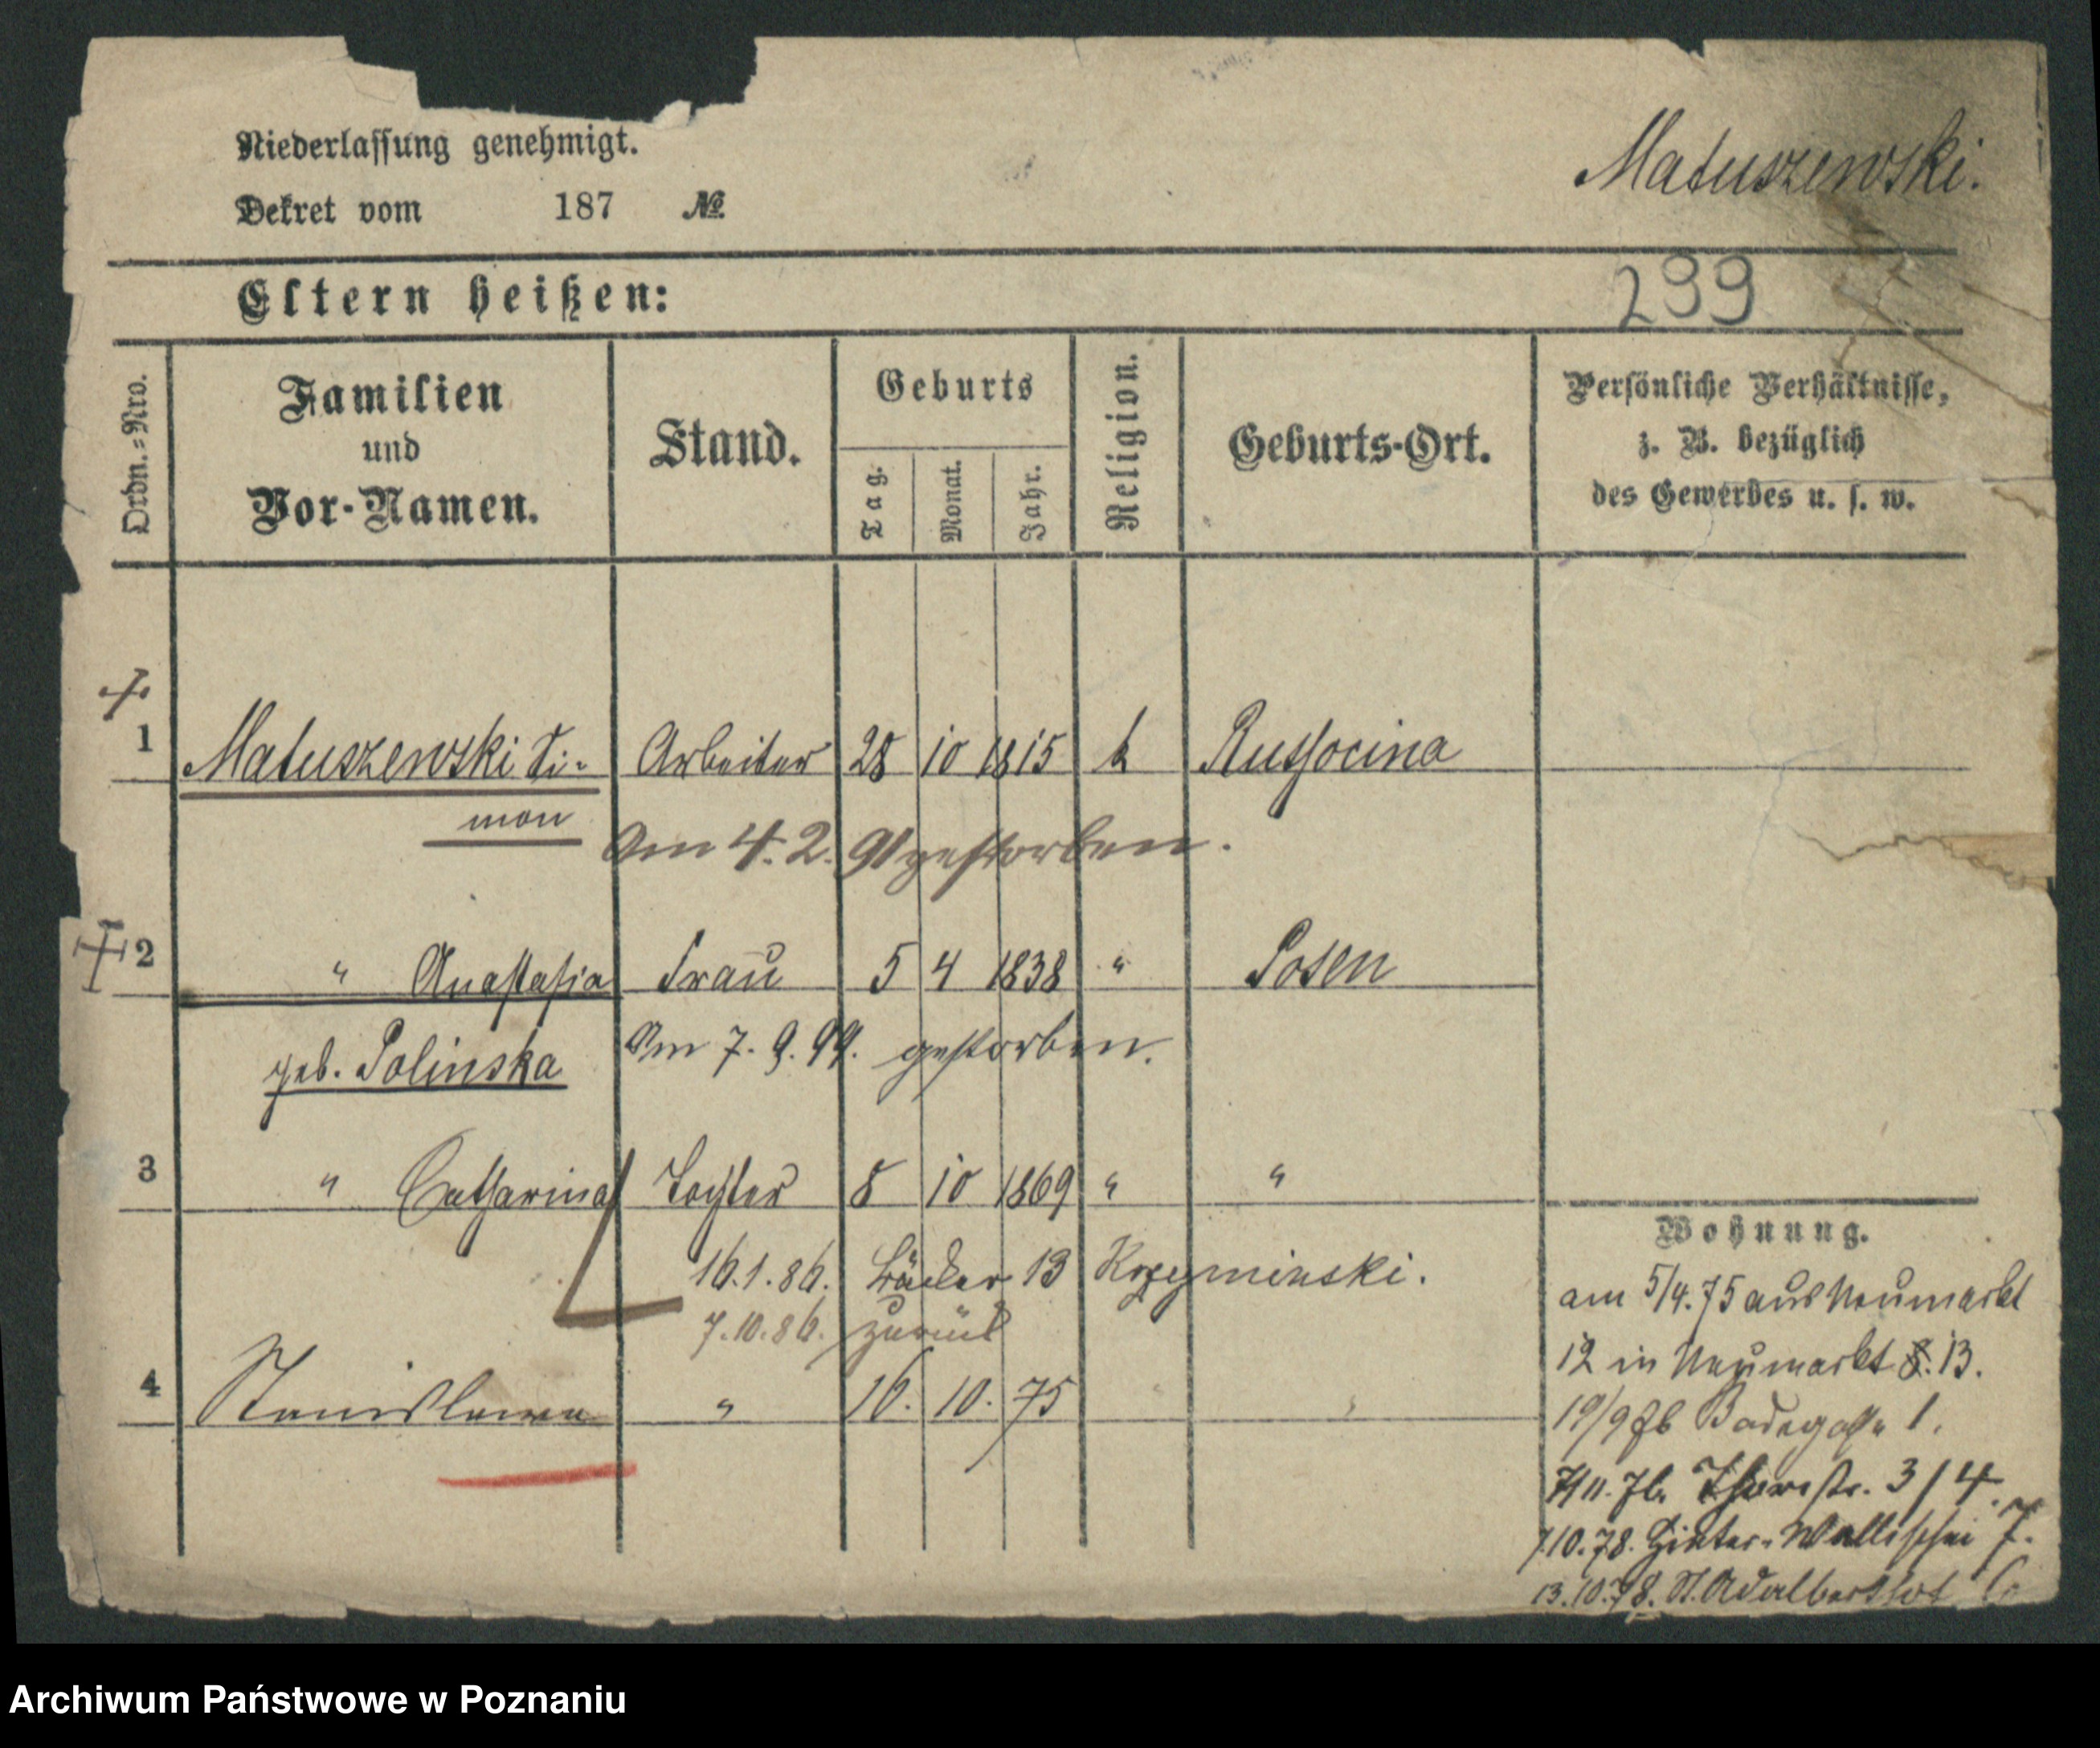 Niederlassung genehmigt.
Matuszewski.
Dekret vom 187 №
Eltern heißen:
299
Ordn.=Nro.
Familien
und
Vor-Namen.
Stand.
Geburts
Tag.
Monat.
Jahr.
Religion.
Geburts-Ort.
Persönliche Verhältnisse,
z. B. bezüglich
des Gewerbes u. s. w.
1 Matuszewski Si- Arbeiter 28 10 1815 k Russocina
mon
Am 4. 2. 91 gestorben.
2 " Anastasia Frau 5 4 1838 " Posen
geb. Polinska
Am 7. 9. 99. gestorben.
3 " Catharina Tochter 8 10 1869 " "
16.1.86. Bäcker 13 Krzyminski.
7.10.86. zurück
4 Stanislawa " 16. 10. 75
Wohnung.
am 5/4.75 aus Neumarkt
12 in Neumarkt 8. 13.
19/9 76 Badegasse 1.
7/11. 76. 3/4.
7.10.78. Hinter-Wallischei 7.
13.10.78. St. Adalbert 6
Archiwum Państwowe w Poznaniu